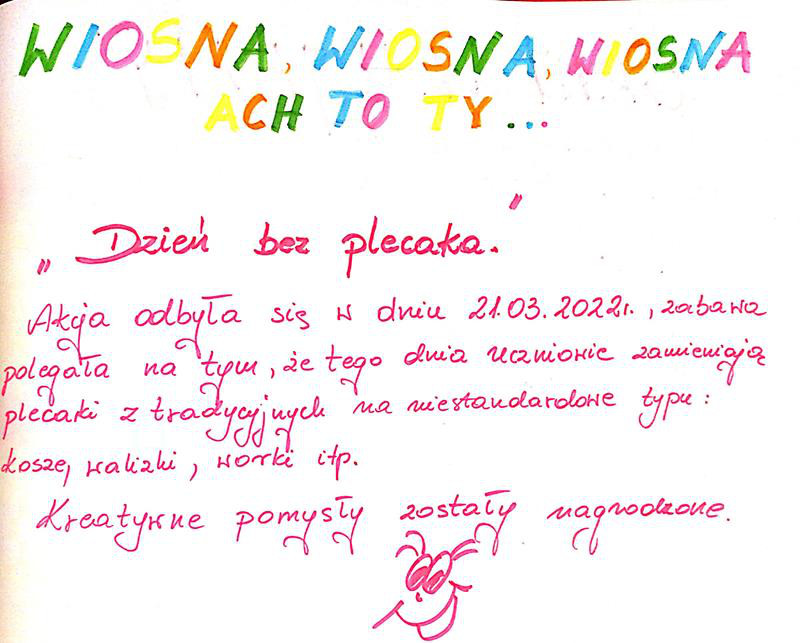 WIOSNA, WIOSNA, WIOSNA
ACH TO TY...
„Dzień bez plecaka."
Akcja odbyła się w dniu 21.03.2022r., zabawa
polegała na tym, że tego dnia uczniowie zamieniają
plecaki z tradycyjnych na niestandardowe typu:
kosze, walizki, worki itp.
Kreatywne pomysły zostały nagrodzone.